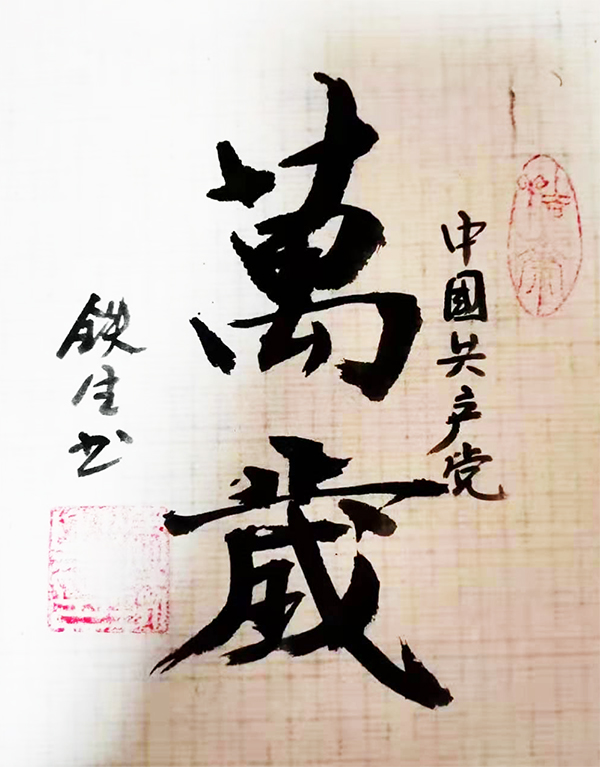 中國共产党
萬歲
铁生书